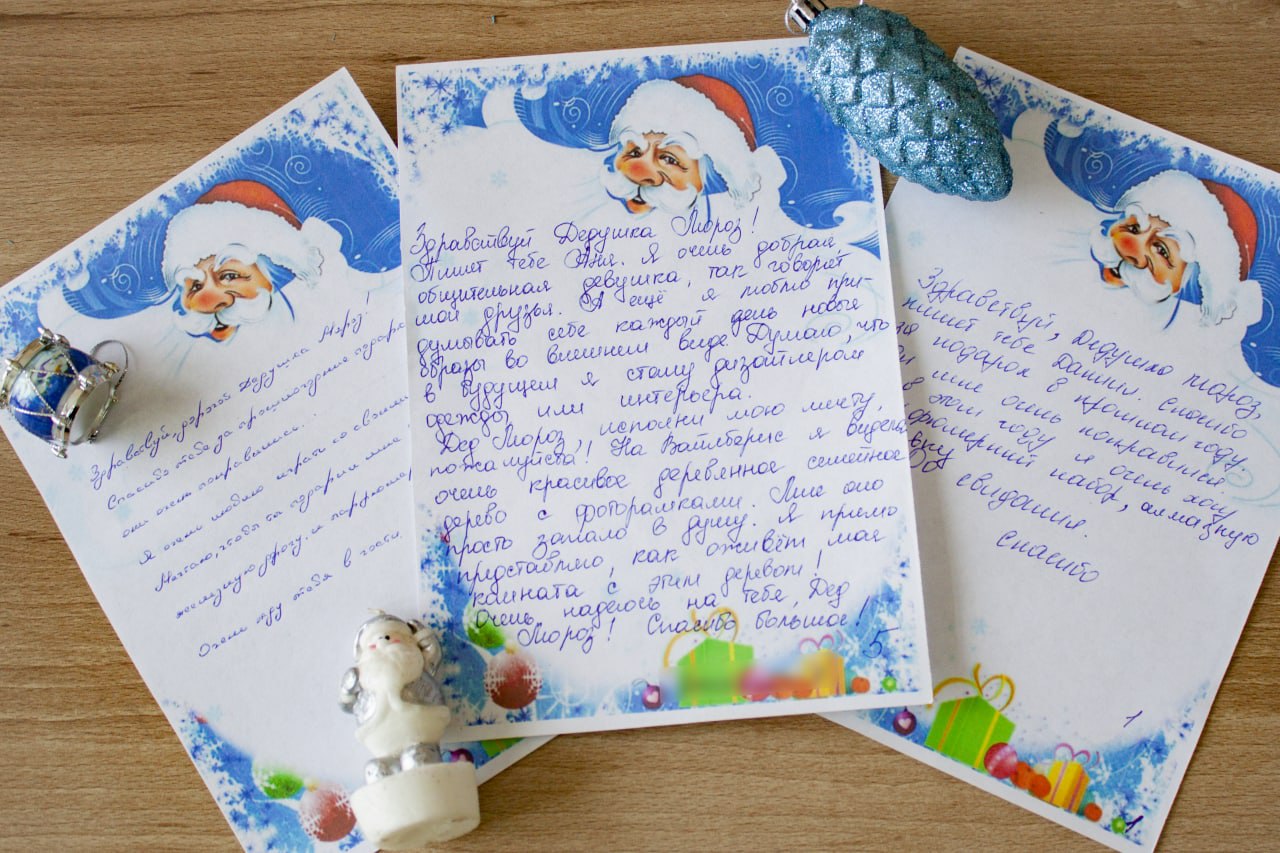 Здравствуй, дорогой Дедушка Мороз!
Спасибо тебе за прошлогодние подарки
они очень понравились.
Я очень люблю играть со своими
Мечтаю, чтобы ты подарил мне
железную дорогу, и парфюмер
Очень жду тебя в гости.
Здравствуй Дедушка Мороз!
Пишет тебе Аня. Я очень добрая
общительная девушка, так говорят
мои друзья. А ещё я люблю при-
думывать себе каждый день новые
образы во внешнем виде. Думаю, что
в будущем я стану дизайнером
одежды или интерьера.
Дед Мороз, исполни мою мечту,
пожалуйста!! На Вайлберис я видела
очень красивое деревянное семейное
дерево с фоторамками. Мне оно
просто запало в душу. Я прямо
представляю, как оживёт моя
комната с этим деревом!
Очень надеюсь на тебя, Дед
Мороз! Спасибо большое!
5
Здравствуй, Дедушка Мороз,
пишет тебе Данил. Спасибо
за подарок в прошлом году,
мне очень понравился.
в этом году я очень хочу
парфюмерный набор, алмазную
свидания.
Спасибо
1
1